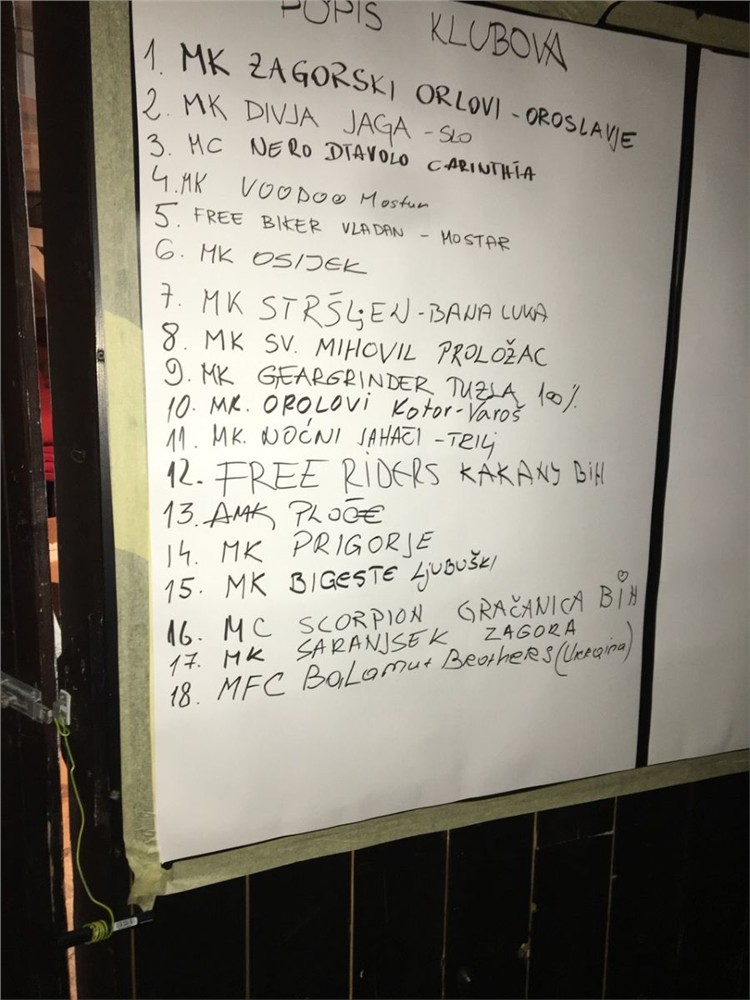 POPIS KLUBOVA
1. MK ZAGORSKI ORLOVI - OROSLAVJE
2. MK DIVJA JAGA - SLO
3. MC NERO DIAVOLO CARINTHIA
4. MK VOODOO Mostar
5. FREE BIKER VLADAN - MOSTAR
6. MK OSIJEK
7. MK STRŠLjEN - BANA LUKA
8. MK SV. MIHOVIL PROLOŽAC
9. MK GEARGRINDER TUZLA 100%
10. MK. OROLOVI Kotor-Varoš
11. MK. NOĆNI JAHAČI - TRILj
12. FREE RIDERS KAKANJ BiH
13. AMK PLOČE
14. MK PRIGORJE
15. MK BIGESTE LjUBUŠKI
16. MC SCORPION GRAČANICA BiH
17. MK SARANJSEK ZAGORA
18. MFC BaLamut Beothers (Ukraina)